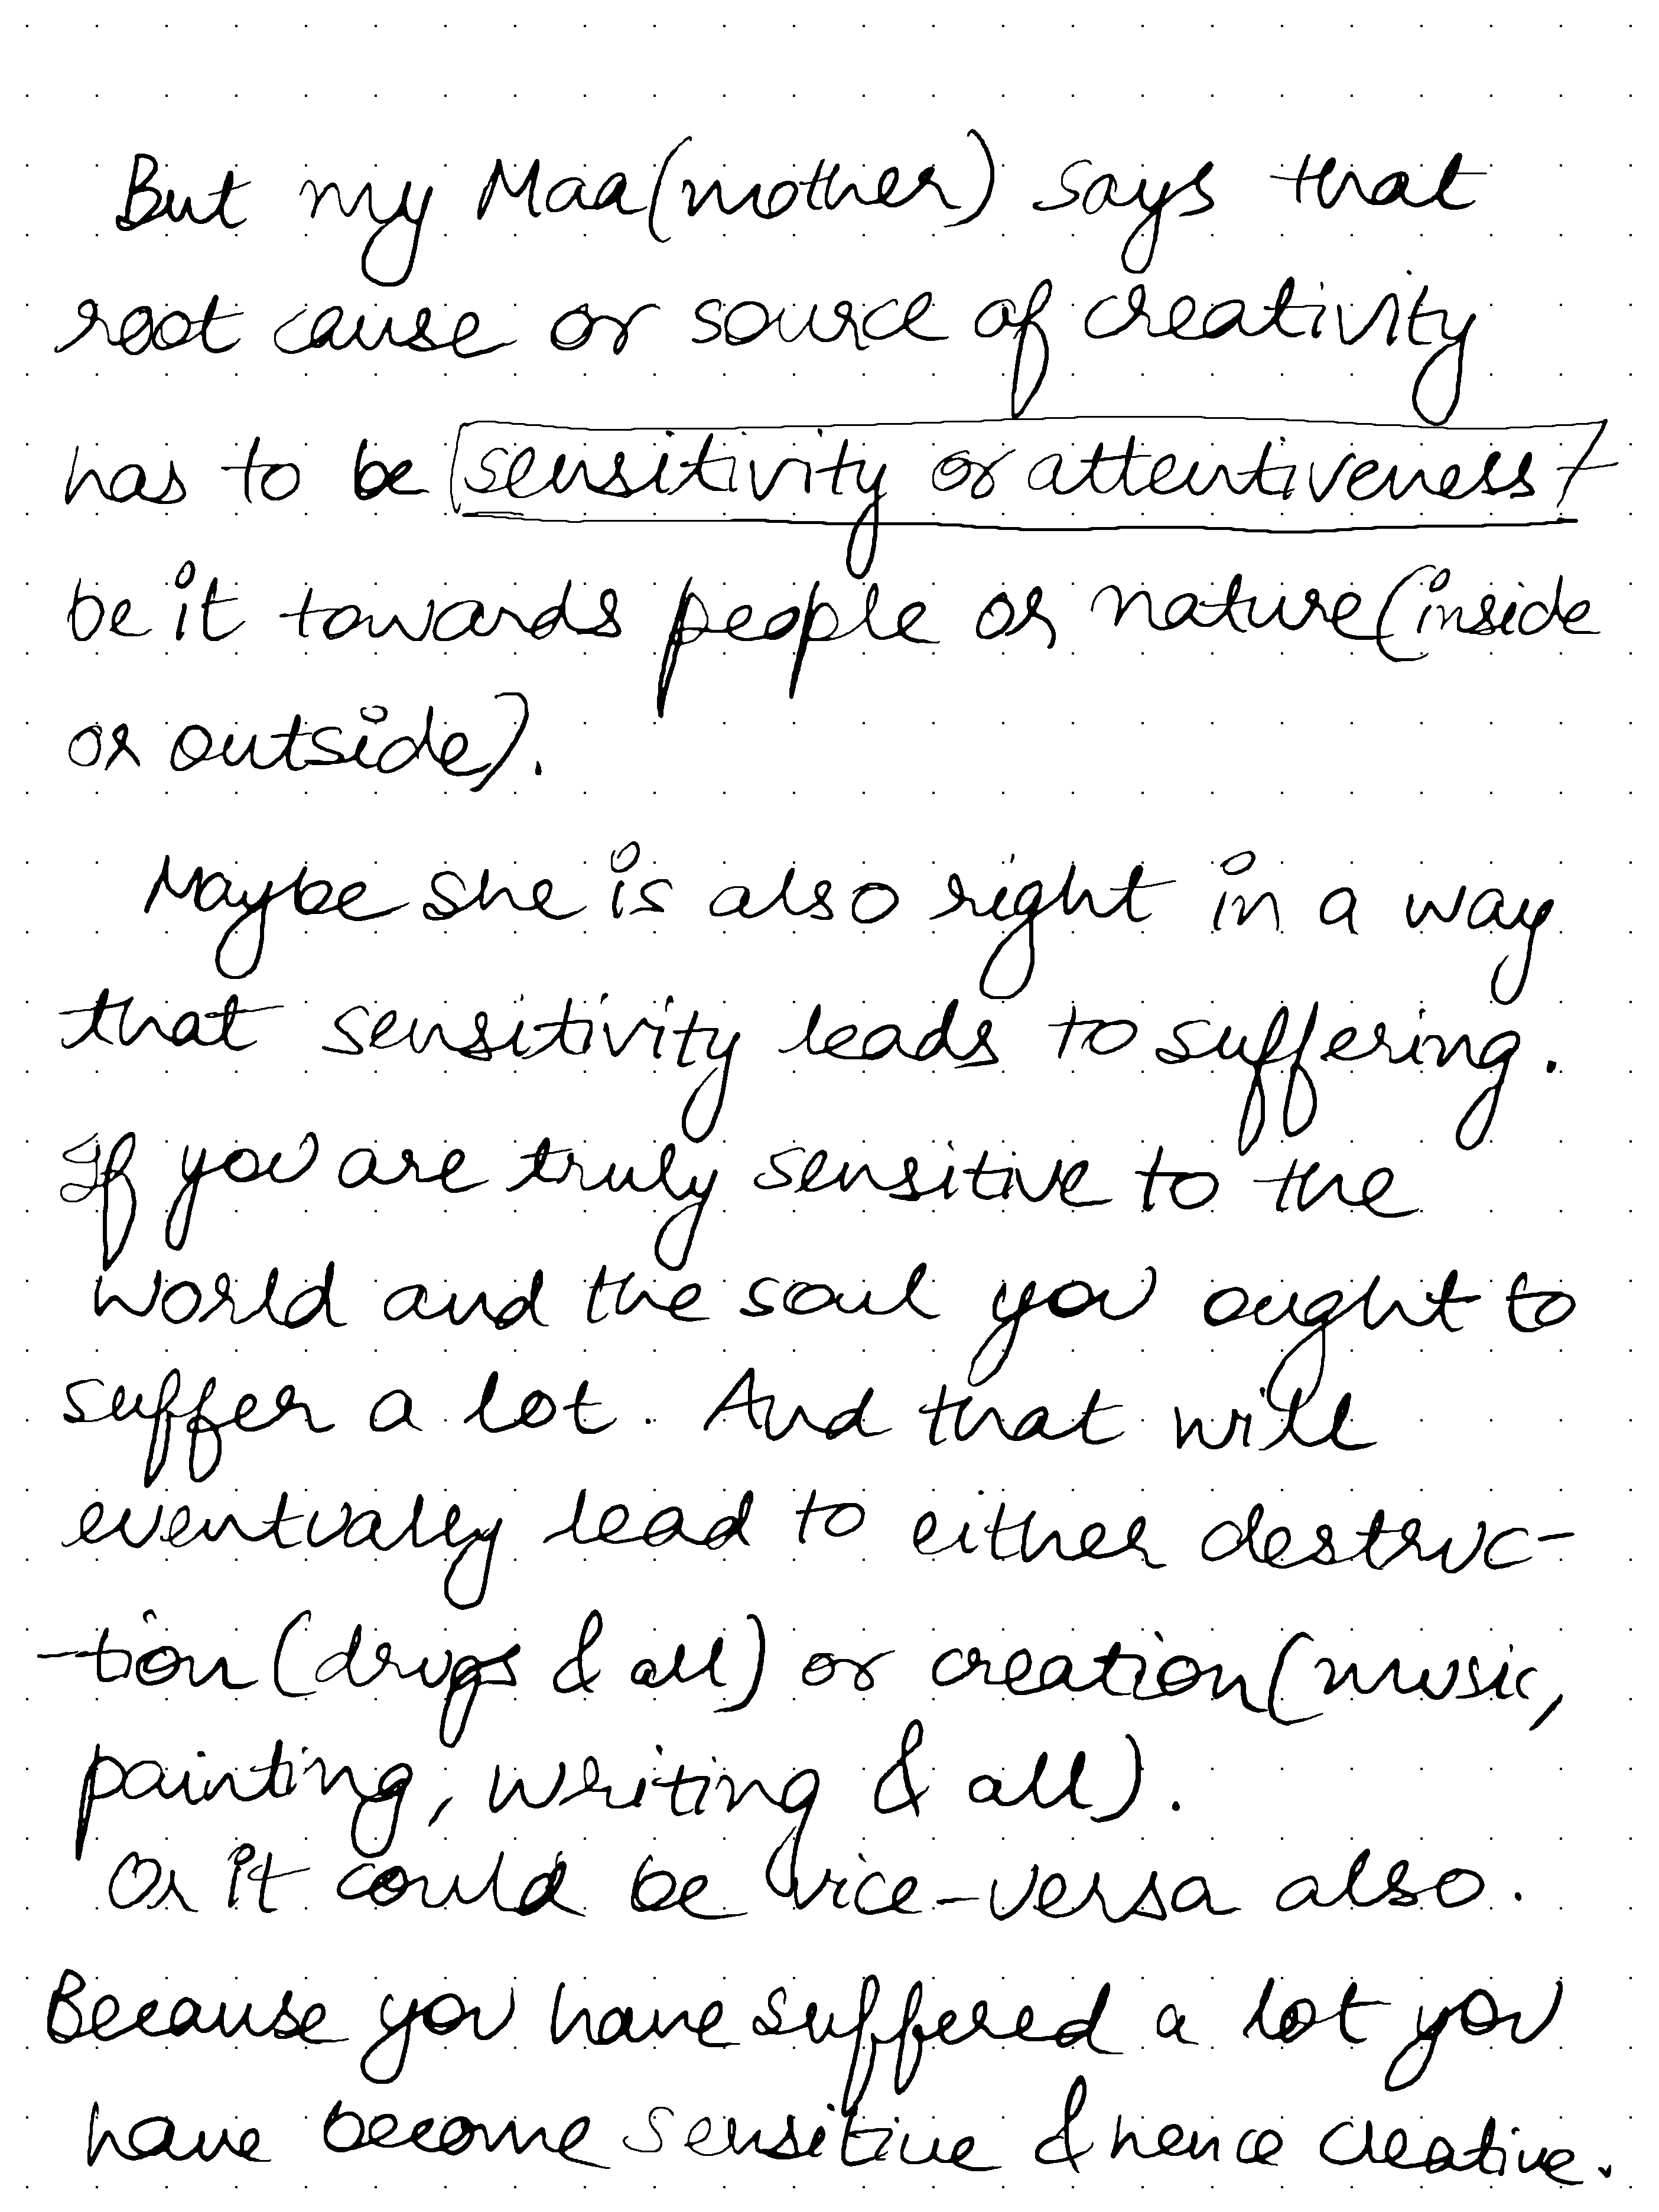 But my Maa(mother) says that
root cause or source of creativity
has to be sensitivity or attentiveness
be it towards people or nature(inside
or outside).
Maybe she is also right in a way
that sensitivity leads to suffering.
If you are truly sensitive to the
world and the soul you ought to
suffer a lot. And that will
eventually lead to either destruc-
-tion(drugs & all) or creation(music,
painting, writing & all).
Or it could be vice-versa also.
Because you have suffered a lot you
have become sensitive & hence creative.